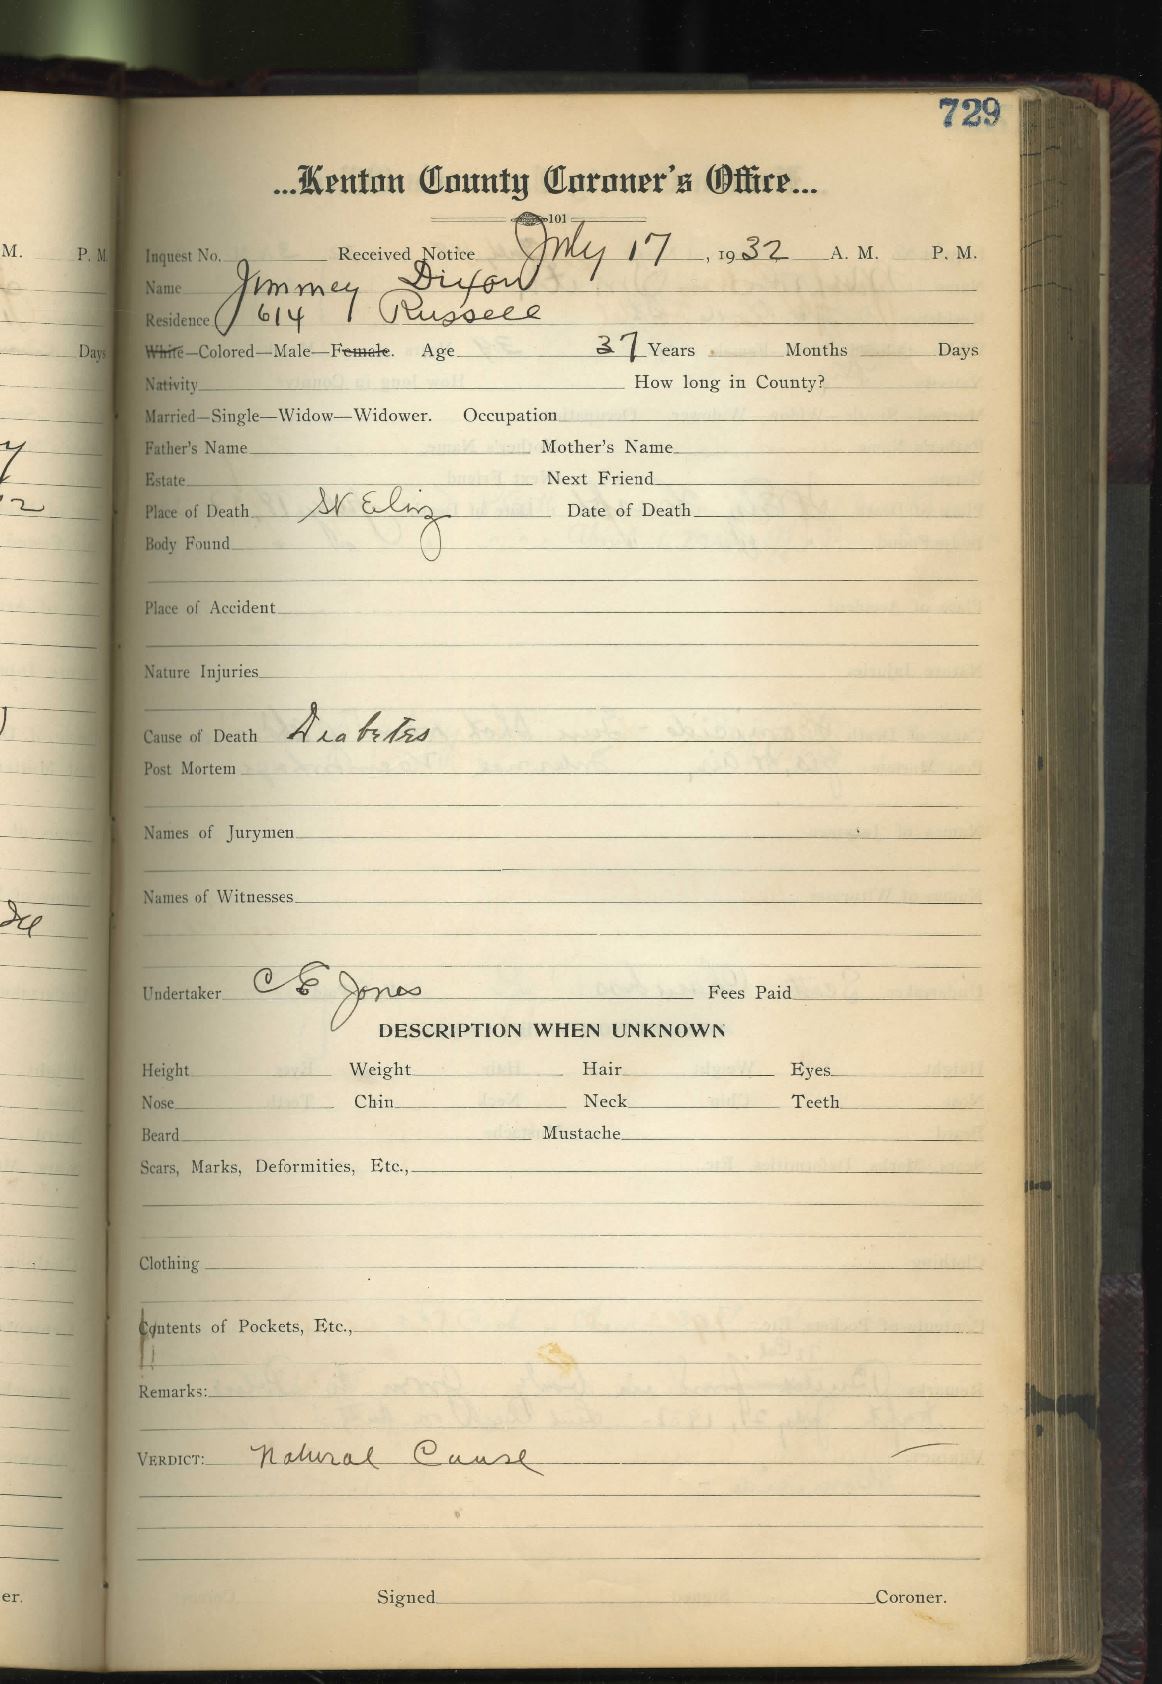 729
...Kenton County Coroner's Office...
101
Inquest No. Received Notice July 17, 1932 A. M. P. M.
Name Jimmey Dixon
Residence 614 Russell
White—Colored—Male—Female. Age 37 Years Months Days
Nativity How long in County?
Married—Single—Widow—Widower. Occupation
Father's Name Mother's Name
Estate Next Friend
Place of Death St Eliz Date of Death
Body Found
Place of Accident
Nature Injuries
Cause of Death Diabetes
Post Mortem
Names of Jurymen
Names of Witnesses
Undertaker C E Jones Fees Paid
DESCRIPTION WHEN UNKNOWN
Height Weight Hair Eyes
Nose Chin Neck Teeth
Beard Mustache
Scars, Marks, Deformities, Etc.,
Clothing
Contents of Pockets, Etc.,
Remarks:
VERDICT: Natural Cause
Signed Coroner.
M. P. M.
Days
er.